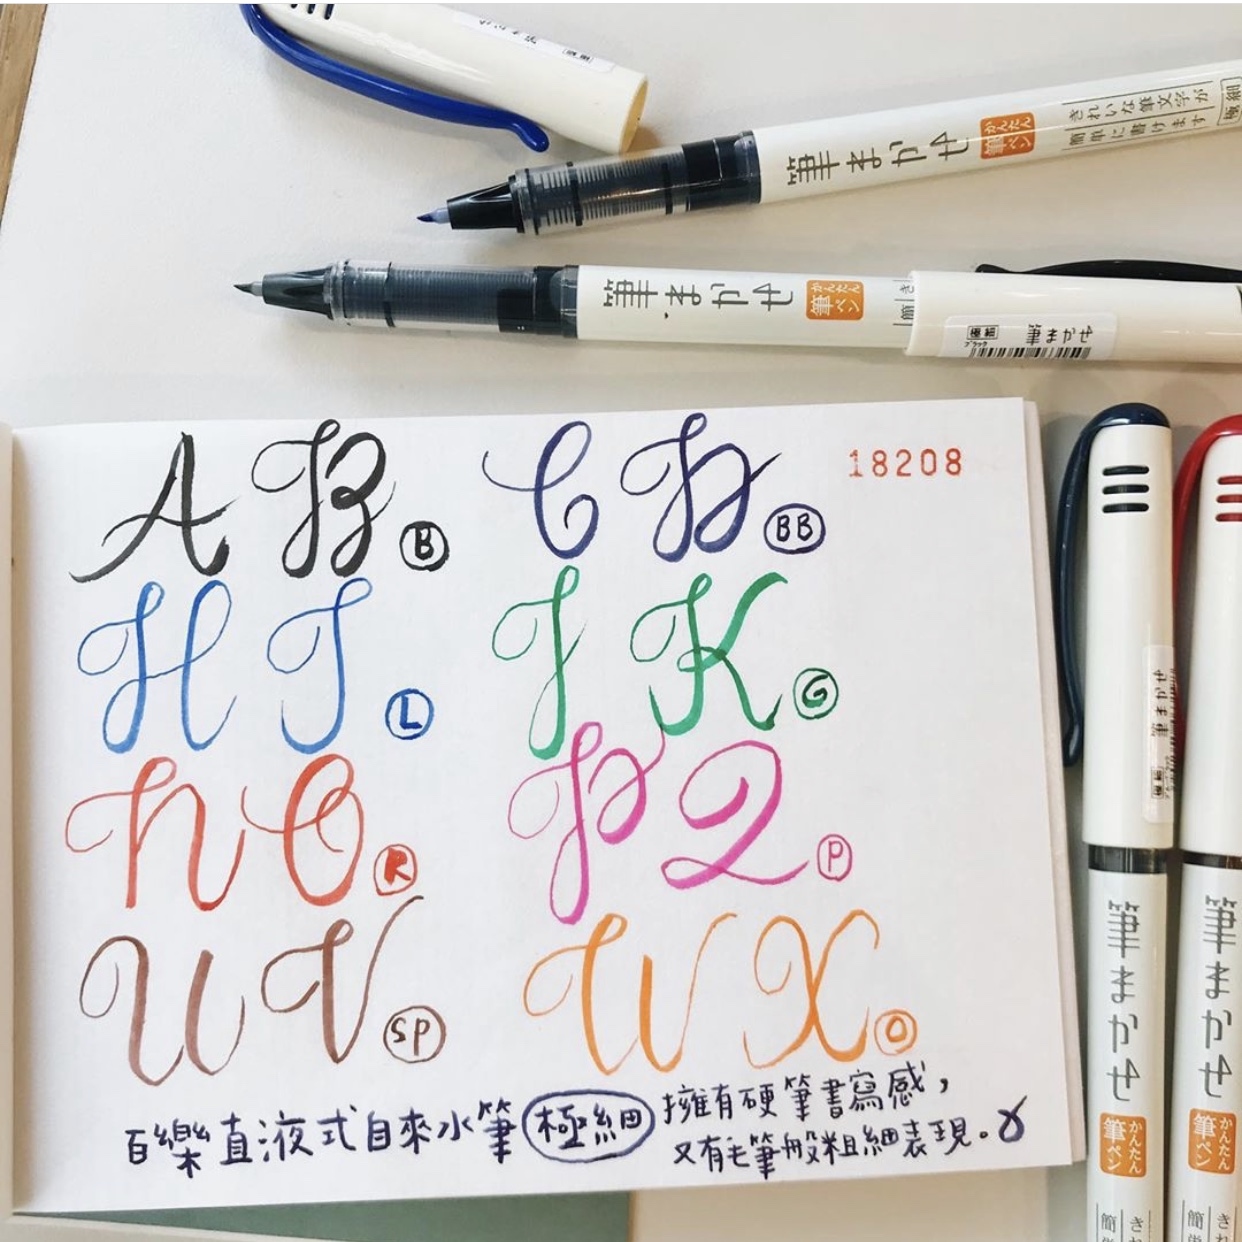 筆まかせ かんたん筆ペン きれいな筆文字が簡単に書けます 極細
筆まかせ かんたん筆ペン き 簡
極細 ブラック 筆まかせ
18208
A B Ⓑ C D BB
H I Ⓛ J K Ⓖ
N O Ⓡ P Q Ⓟ
U V SP W X Ⓞ
百樂直液式自來水筆 極細 擁有硬筆書寫感，
又有毛筆般粗細表現。
筆まかせ 極細
筆まかせ かんたん筆ペン
筆まかせ かんたん筆ペン